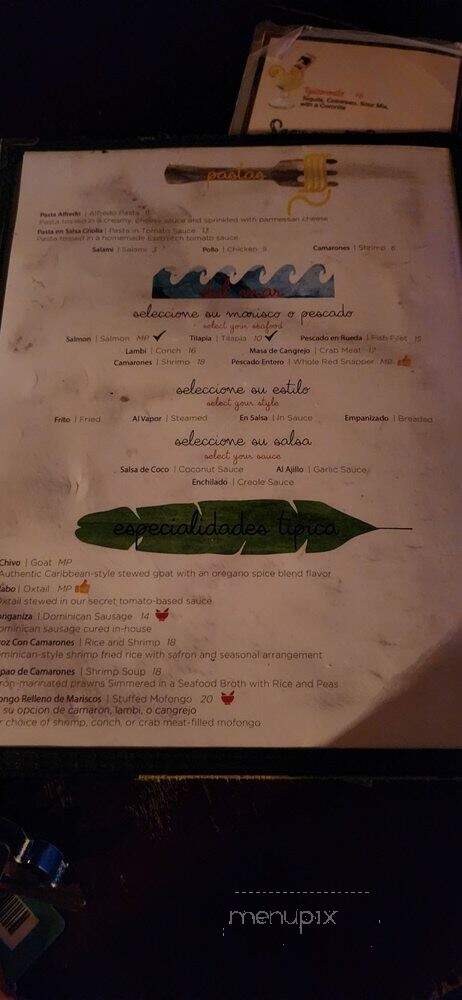 Tequila, Cointreau, Sour Mix,
with a Coronita
pastas
Pasta Alfredo | Alfredo Pasta 11
Pasta tossed in a creamy, cheese sauce and sprinkled with parmesan cheese
Pasta en Salsa Criolla | Pasta in Tomato Sauce 13
Pasta tossed in a homemade tomato sauce
Salami | Salami 3 Pollo | Chicken 5 Camarones | Shrimp 6
del mar
seleccione su marisco o pescado
select your seafood
Salmon | Salmon MP Tilapia | Tilapia 10 Pescado en Rueda | Fish Filet 15
Lambi | Conch 16 Masa de Cangrejo | Crab Meat 17
Camarones | Shrimp 18 Pescado Entero | Whole Red Snapper MP
seleccione su estilo
select your style
Frito | Fried Al Vapor | Steamed En Salsa | In Sauce Empanizado | Breaded
seleccione su salsa
select your sauce
Salsa de Coco | Coconut Sauce Al Ajillo | Garlic Sauce
Enchilado | Creole Sauce
especialidades tipica
Chivo | Goat MP
Authentic Caribbean-style stewed goat with an oregano spice blend flavor
Rabo | Oxtail MP
Oxtail stewed in our secret tomato-based sauce
onganiza | Dominican Sausage 14
ominican sausage cured in-house
roz Con Camarones | Rice and Shrimp 18
ominican-style shrimp fried rice with safron and seasonal arrangement
pao de Camarones | Shrimp Soup 18
ron-marinated prawns Simmered in a Seafood Broth with Rice and Peas
ongo Relleno de Mariscos | Stuffed Mofongo 20
su opcion de camaron, lambi, o cangrejo
r choice of shrimp, conch, or crab meat-filled mofongo
menupix